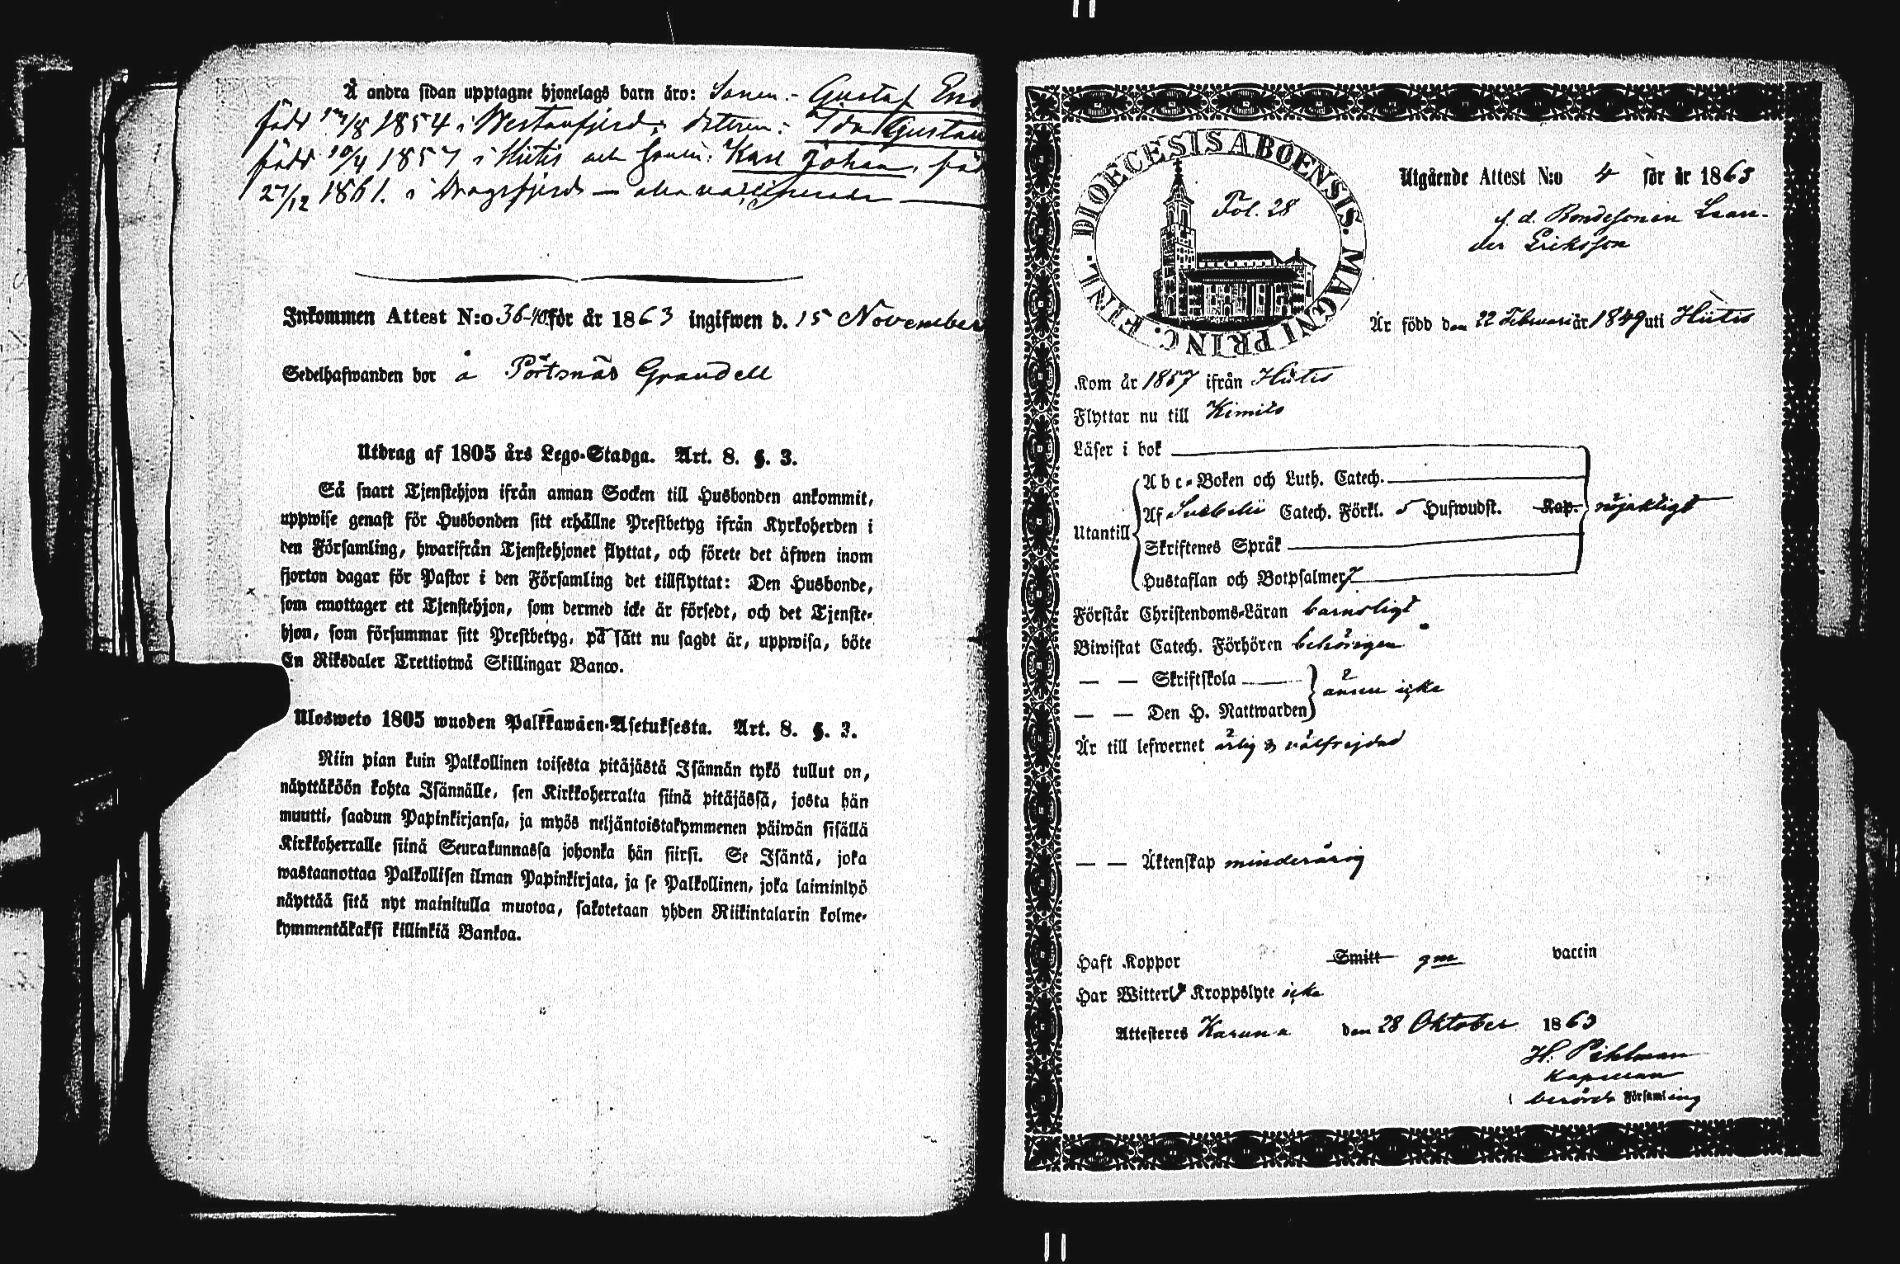 Å andra sidan upptagne hjonelags barn äro: Sonen:- Gustaf
född 17/8 1854 i Westanfjerd; dottren: Ida Gustava
född 10/4 1857 i Hitis och sonen: Karl Johan, född
27/12 1861. i Dragsfjerd — alla vaccinerade —
Inkommen Attest N:o 36-40 för år 1863 ingifwen d. 15 November
Sedelhafwanden bor å Pörtsnäs Grandell
Utdrag af 1805 års Lego-Stadga. Art. 8. §. 3.
Så snart Tjenstehjon ifrån annan Socken till Husbonden ankommit,
uppwise genast för Husbonden sitt erhållne Prestbetyg ifrån Kyrkoherden i
den Församling, hwarifrån Tjenstehjonet flyttat, och förete det äfwen inom
fjorton dagar för Pastor i den Församling det tillflyttat: Den Husbonde,
som emottager ett Tjenstehjon, som dermed icke är försedt, och det Tjenste-
hjon, som försummar sitt Prestbetyg, på sätt nu sagdt är, uppwisa, böte
En Riksdaler Trettiotwå Skillingar Banco.
Ulosweto 1805 wuoden Palkkawäen-Asetuksesta. Art. 8. §. 3.
Niin pian kuin Palkollinen toisesta pitäjästä Isännän tykö tullut on,
näyttäköön kohta Isännälle, sen Kirkkoherralta siinä pitäjässä, josta hän
muutti, saadun Papinkirjansa, ja myös neljäntoistakymmenen päiwän sisällä
Kirkkoherralle siinä Seurakunnassa johonka hän siirsi. Se Isäntä, joka
wastaanottaa Palkollisen ilman Papinkirjata, ja se Palkollinen, joka laiminlyö
näyttää sitä nyt mainitulla muotoa, sakotetaan yhden Riikintalarin kolme-
kymmentäkaksi killinkiä Bankoa.
DIOECESIS ABOENSIS. MAGNI PRINC. FINL.
Fol. 28
Utgående Attest N:o 4 för år 1863
f. d. Bondesonen Lean-
der Eriksson
Är född den 22 Februari år 1849 uti Hitis
Kom år 1857 ifrån Hitis
Flyttar nu till Kimito
Läser i bok
Abc-Boken och Luth. Catech.
Utantill Af Svebelii Catech. Förkl. 5 Hufwudst. Kap. nöjaktigt
Skriftenes Språk
Hustaflan och Botpsalmer 7
Förstår Christendoms-Läran barnsligt
Biwistat Catech. Förhören behörigen
— — Skriftskola
— — Den H. Nattwarden ännu icke
Är till lefwernet ärlig & välfrejdad
— — Äktenskap minderårig
Haft Koppor Smitt gm vaccin
Har Witterl. Kroppslyte icke
Attesteres Karuna den 28 Oktober 1863
H. Pihlman
Kapellan
i berörda Församling